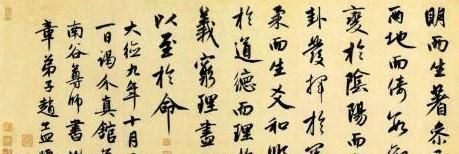 明而生蓍參
兩地而倚數
變於陰陽而
卦發揮於
柔而生爻和順
於道德而理於
義窮理盡
以至於命
大德九年十月
一日謁介真館
南谷尊師書
章弟子趙孟頫